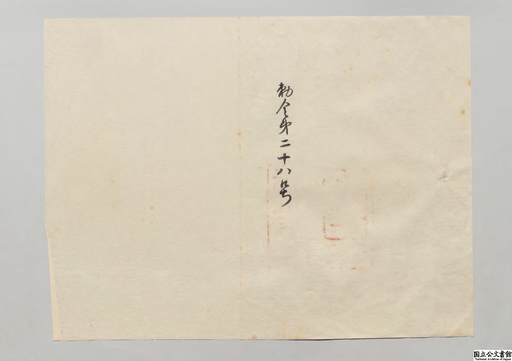 勅令第二十八号
国立公文書館
National Archives of Japan